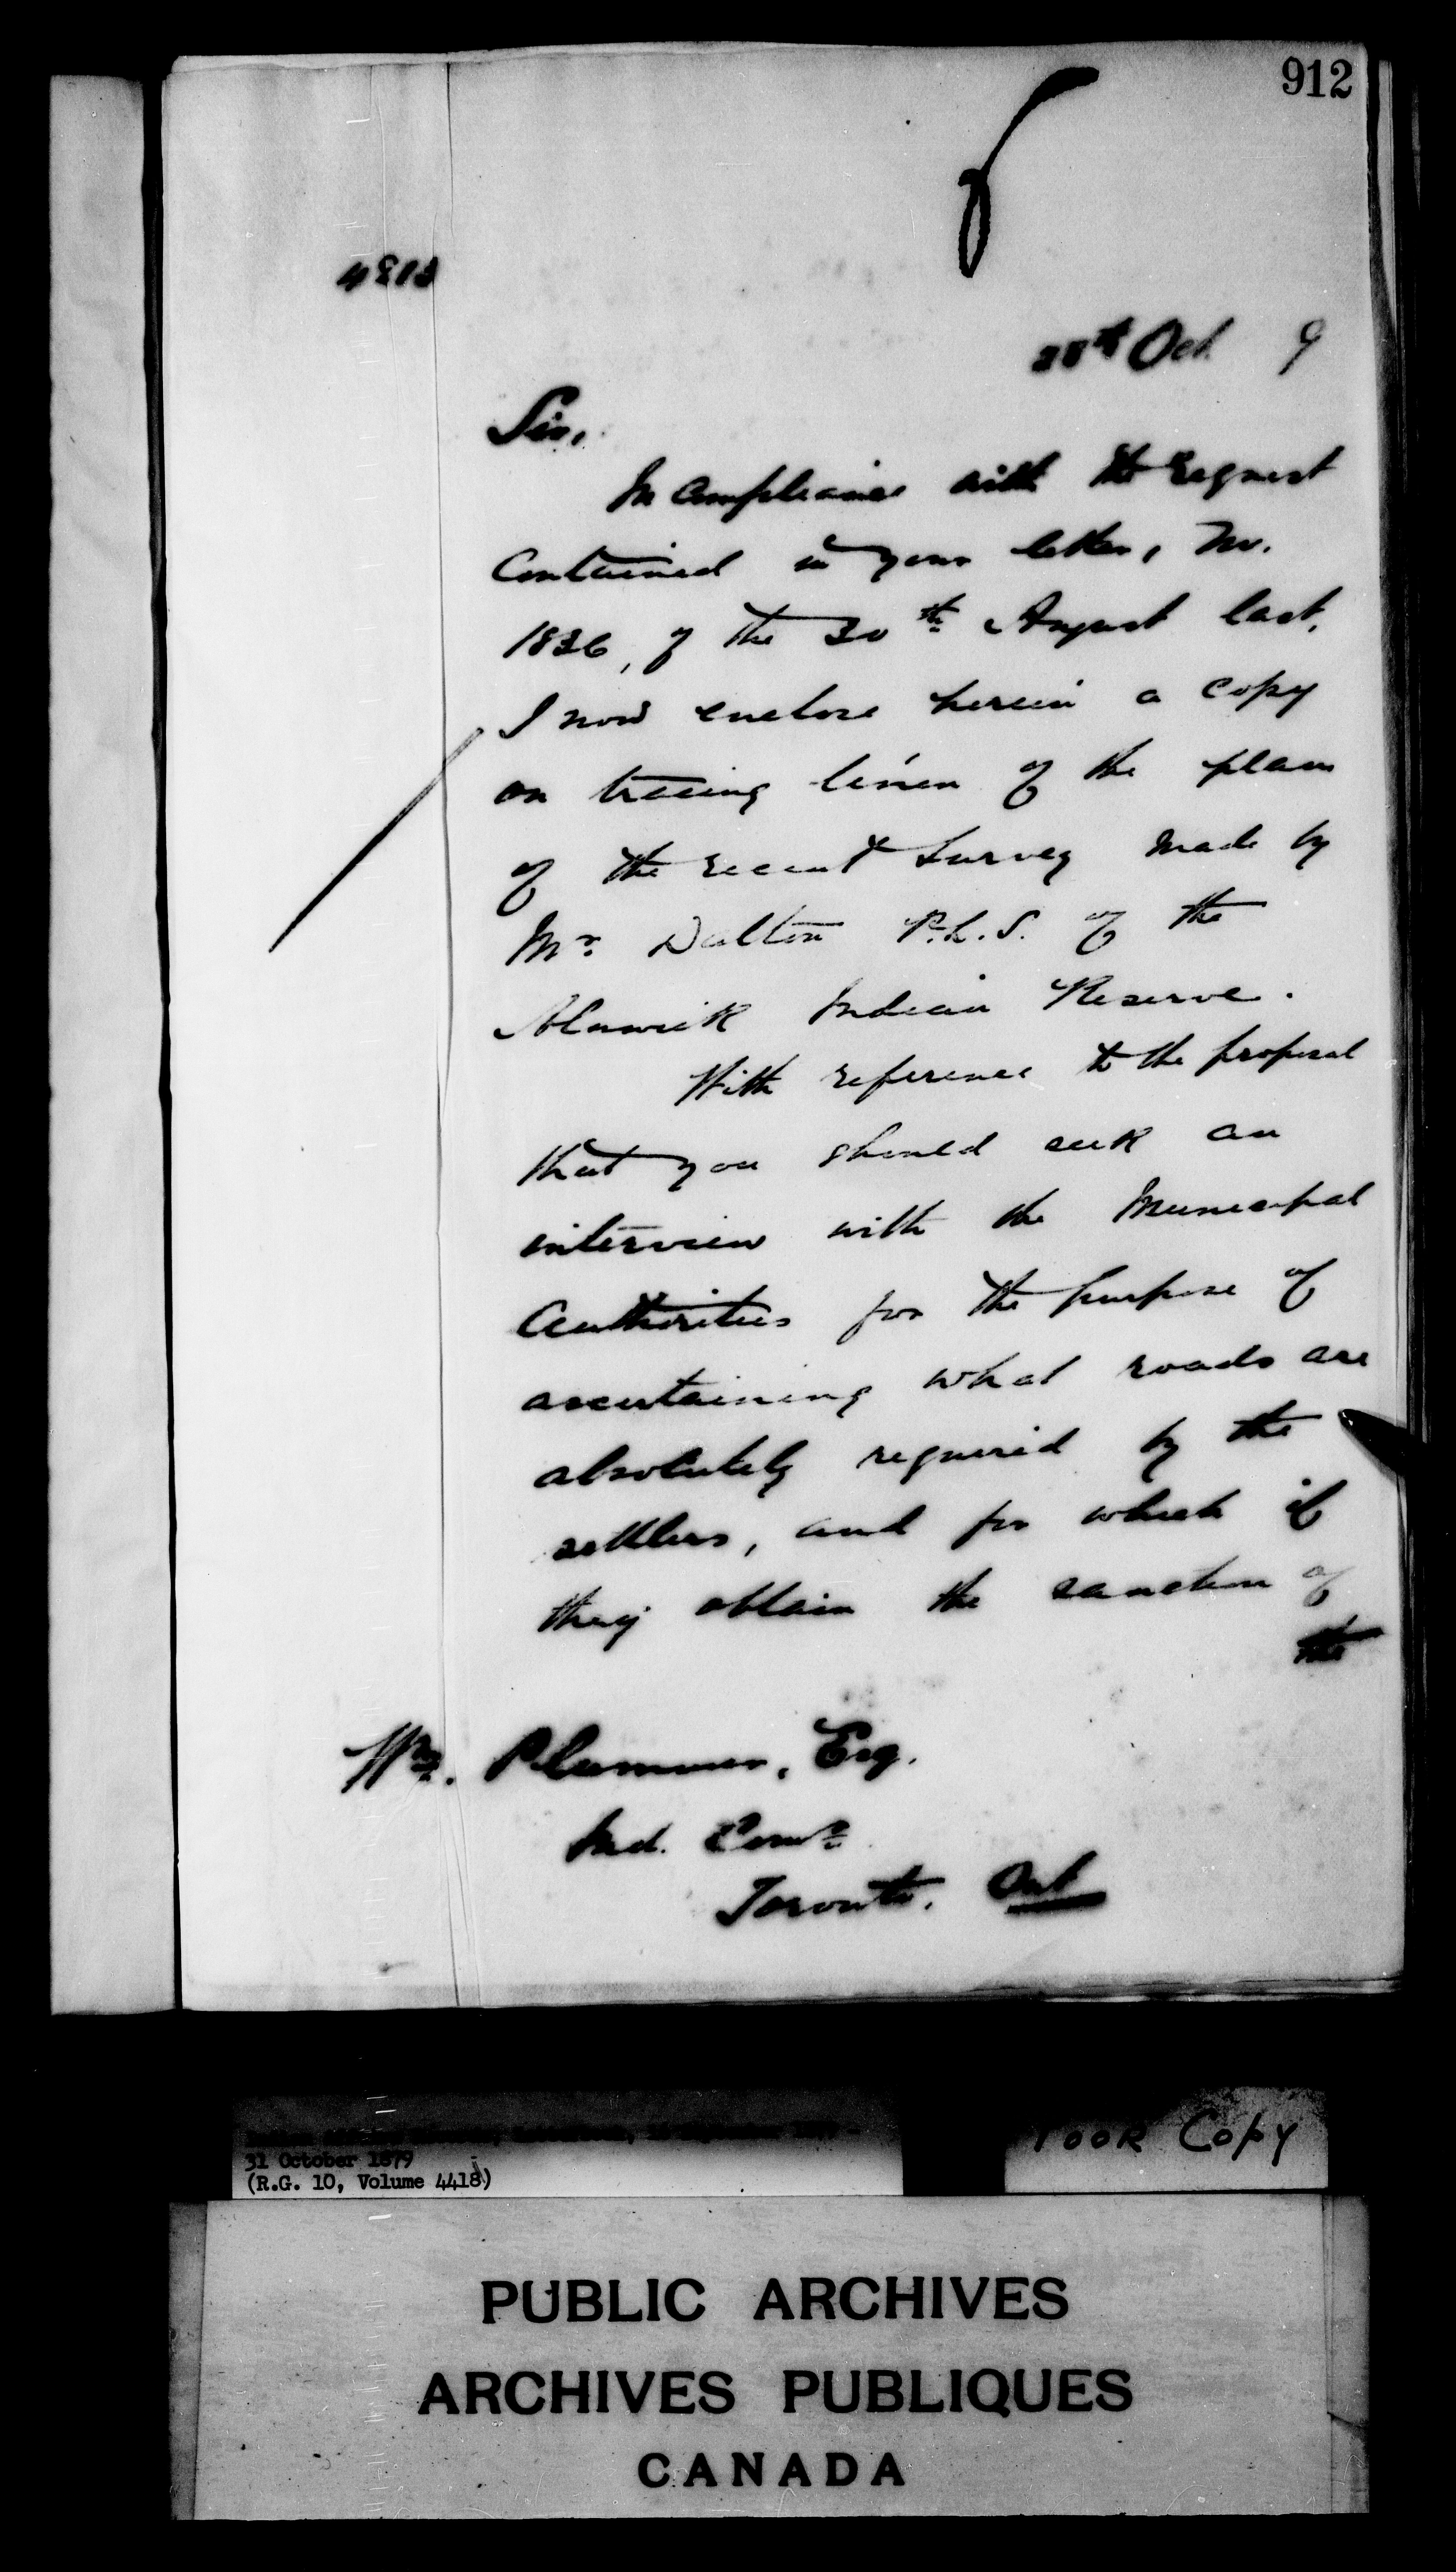 912
28th Oct 9
Sir,
In compliance with the request
Contained in your letter, No.
1836, of the 30th August last,
I now enclose herein a copy
on tracing linen of the plan
of the recent Survey made by
Mr. Dalton P.L.S. of the
Alnwick Indian Reserve.
With reference to the proposal
that you should seek an
interview with the Municipal
Authorities for the purpose of
ascertaining what roads are
absolutely required by the
settlers, and for which if
they obtain the sanction of
the
Wm. Plummer, Esq.
Ind. Comr.
Toronto. Ont
31 October 1879
(R.G. 10, Volume 4418)
Poor Copy
PUBLIC ARCHIVES
ARCHIVES PUBLIQUES
CANADA